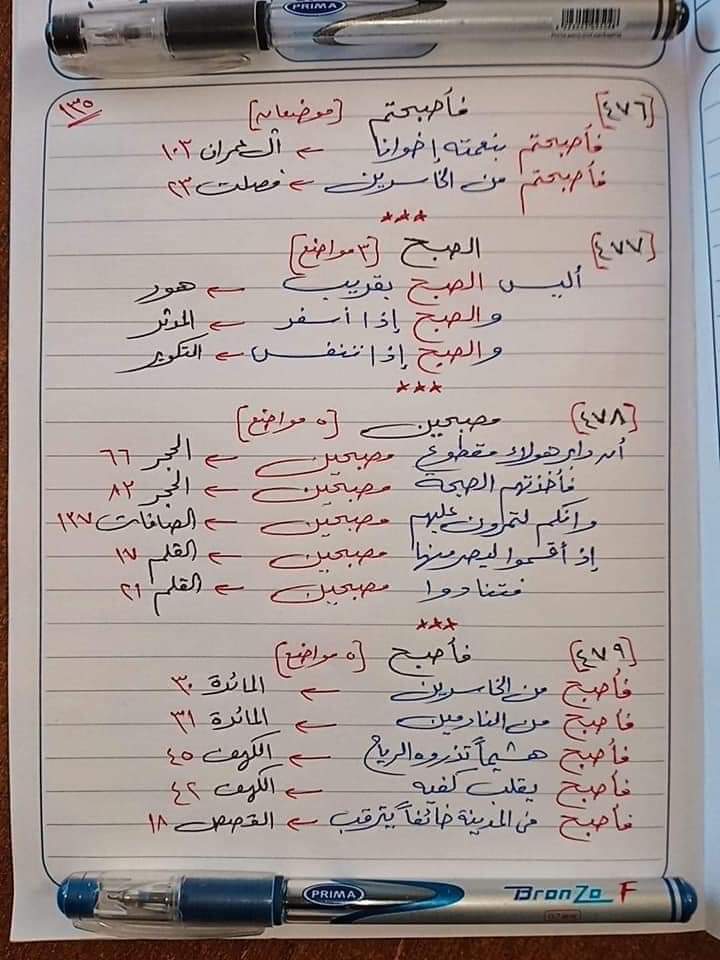 PRIMA
[٤٧٦] فأصبحتم [موضعان] ١٣٥
فأصبحتم بنعمته إخوانا ← آل عمران ١٠٣
فأصبحتم من الخاسرين ← فصلت ٢٣
***
[٤٧٧] الصبح [٣ مواضع]
أليس الصبح بقريب ← هود
والصبح إذا أسفر ← المدثر
والصبح إذا تنفس ← التكوير
***
[٤٧٨] مصبحين [٥ مواضع]
أن دابر هؤلاء مقطوع مصبحين ← الحجر ٦٦
فأخذتهم الصيحة مصبحين ← الحجر ٨٣
وإنكم لتمرون عليهم مصبحين ← الصافات ١٣٧
إذ أقسموا ليصرمنها مصبحين ← القلم ١٧
فتنادوا مصبحين ← القلم ٢١
***
[٤٧٩] فأصبح [٥ مواضع]
فأصبح من الخاسرين ← المائدة ٣٠
فأصبح من النادمين ← المائدة ٣١
فأصبح هشيماً تذروه الرياح ← الكهف ٤٥
فأصبح يقلب كفيه ← الكهف ٤٢
فأصبح في المدينة خائفاً يترقب ← القصص ١٨
PRIMA BronZo F